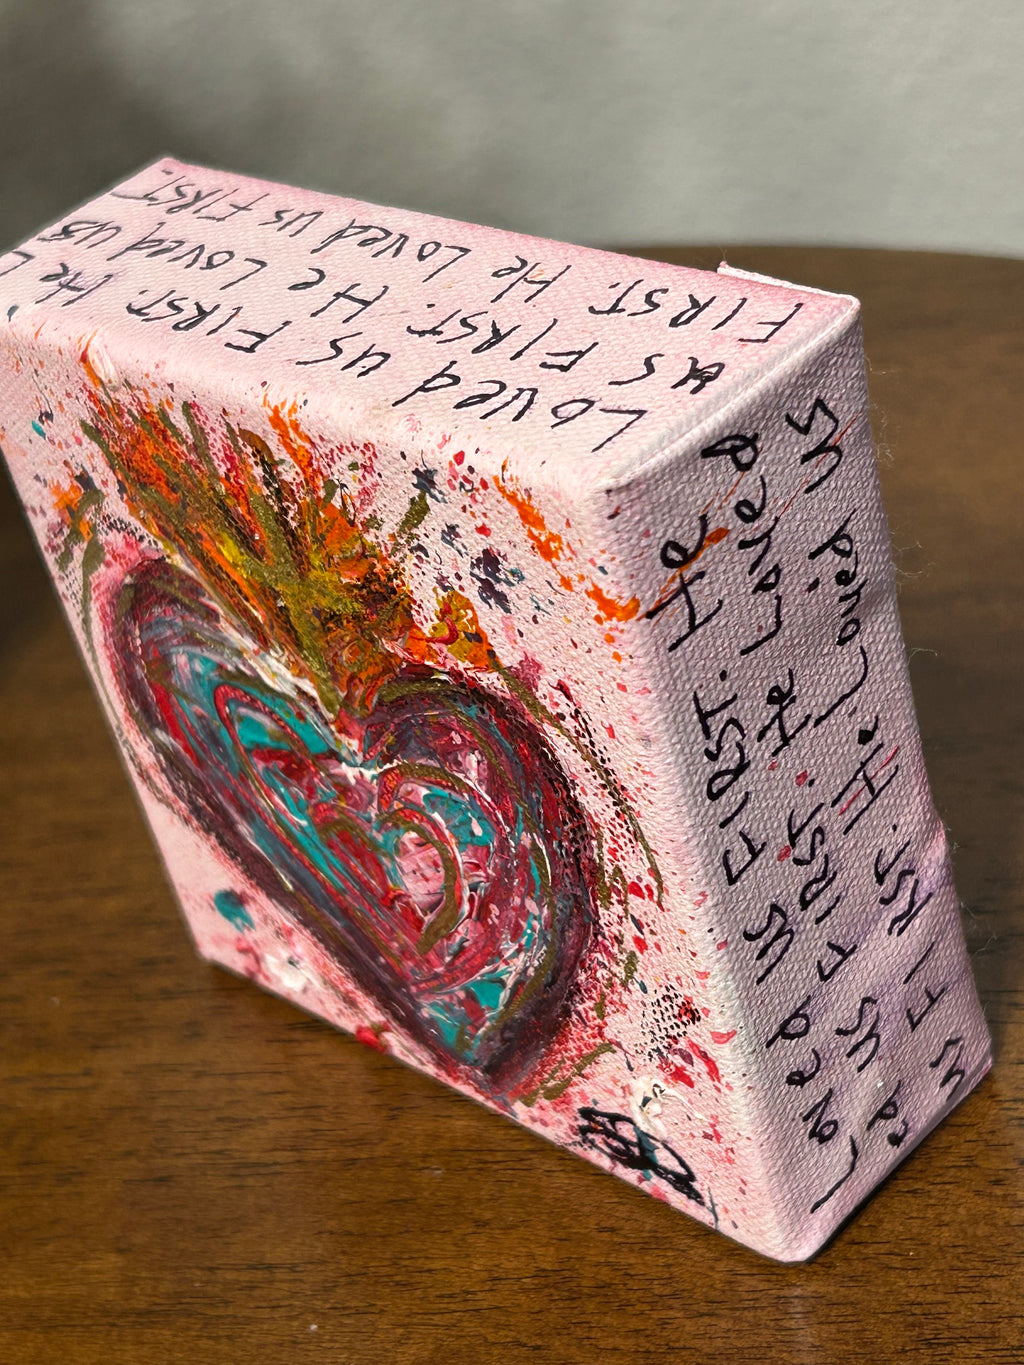 Loved us FIRST. He L
us FIRST. He Loved us
FIRST. He Loved us FIRST.
Loved us FIRST. He
ed us FIRST. He Loved
us FIRST. He Loved us